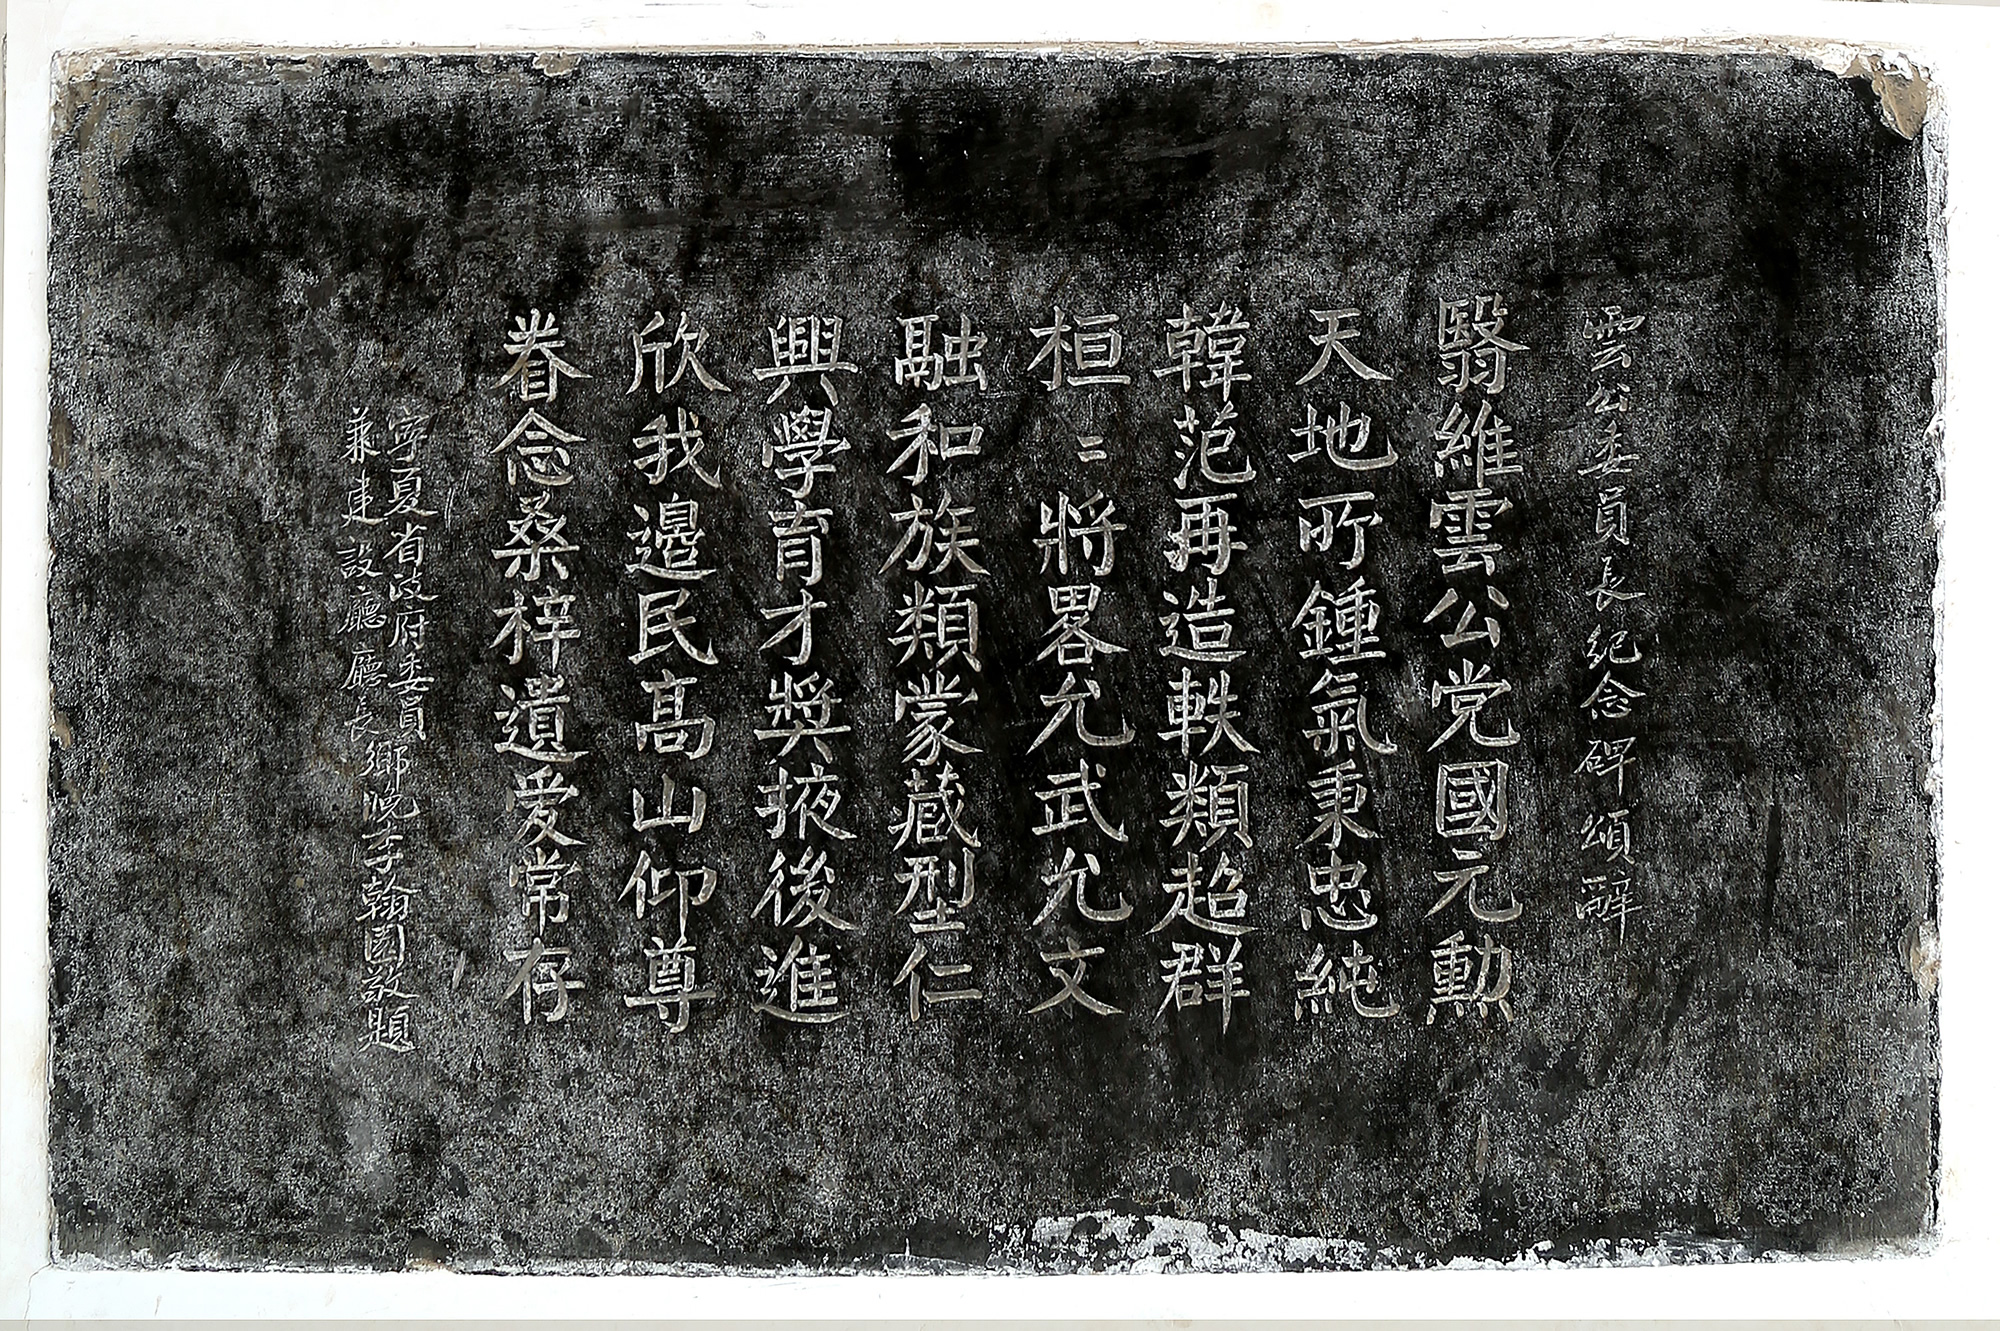 雲公委員長紀念碑頌辭
翳維雲公党國元勳
天地所鍾氣秉忠純
韓范再造軼類超群
桓〻將畧允武允文
融和族類蒙藏型仁
興學育才獎掖後進
欣我邊民髙山仰尊
眷念桑梓遺愛常存
寧夏省政府委員
兼建設廳廳長
鄉晚李翰園敬題